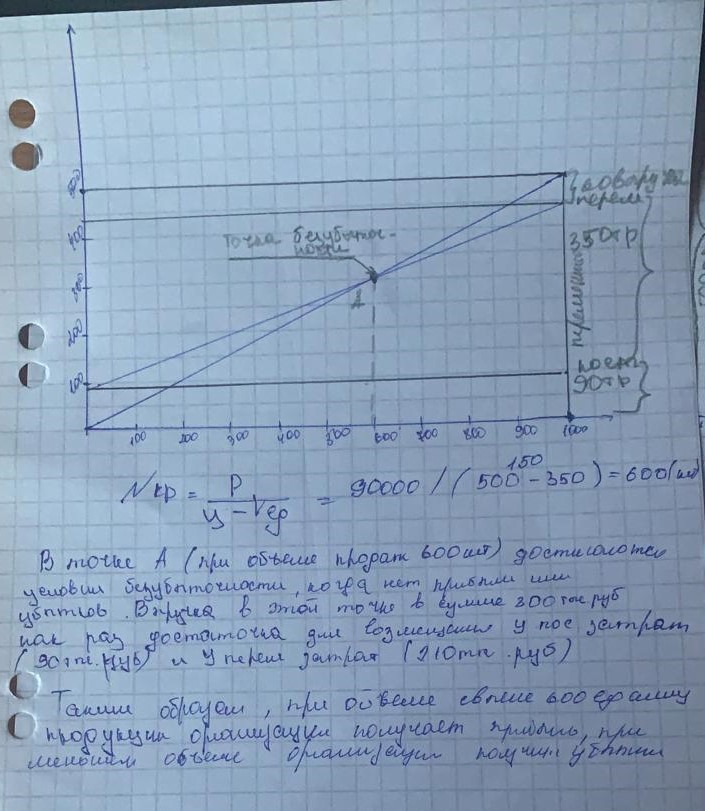 500
400
300
200
100
Точка безубыточ-
ности
А
перем
350тр
пост
90тр
100 200 300 400 500 600 700 800 900 1000
150
Nкр = P / (Ц - Vед) = 90000 / (500 - 350) = 600 (шт)
В точке А (при объеме продаж 600 шт) достигаются
условия безубыточности, когда нет прибыли или
убытков. Выручка в этой точке в сумме 300 тыс руб
как раз достаточна для возмещения У пос затрат
(90тп. руб) и У перем затрат (210тп. руб)
Таким образом, при объеме свыше 600 единиц
продукции организация получает прибыль, при
меньшем объеме организация получит убытки